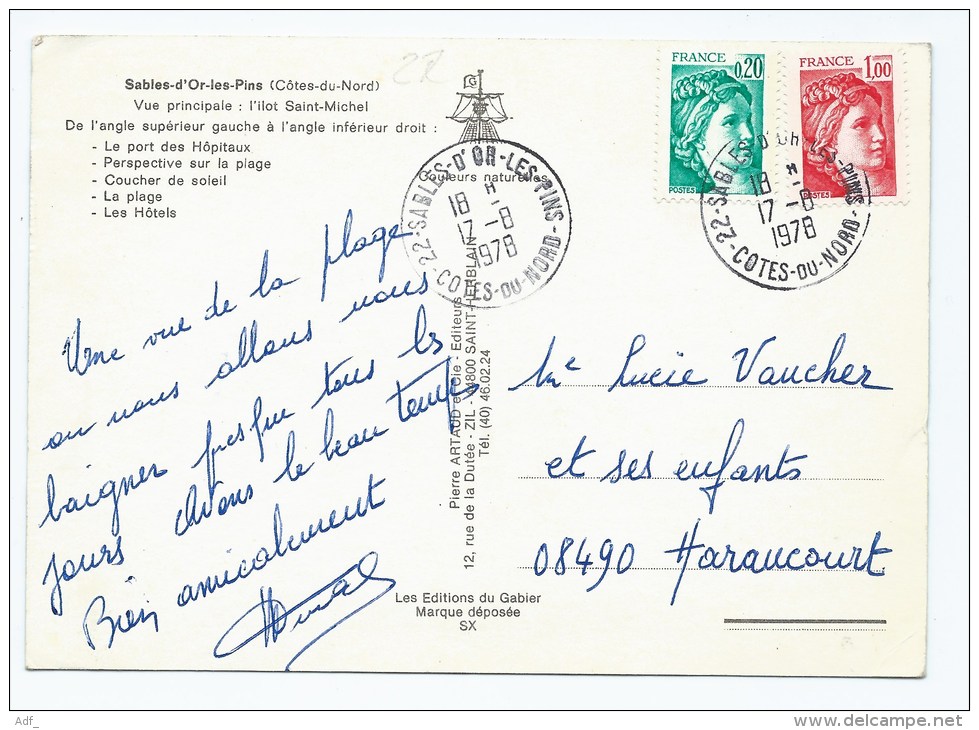 22
Sables-d'Or-les-Pins (Côtes-du-Nord)
Vue principale : l'ilot Saint-Michel
De l'angle supérieur gauche à l'angle inférieur droit :
- Le port des Hôpitaux
- Perspective sur la plage
- Coucher de soleil
- La plage
- Les Hôtels
G
Couleurs naturelles
FRANCE
0,20
POSTES
FRANCE
1,00
POSTES
22-SABLES-D'OR-LES-PINS
18 H
17-8
1978
COTES-DU-NORD
22-SABLES-D'OR-LES-PINS
18 H
17-8
1978
COTES-DU-NORD
Une vue de la plage
ou nous allons nous
baigner presque tous les
jours Avons le beau temps
Bien amicalement
Pierre ARTAUD et Cie - Editeurs
12, rue de la Dutée - ZIL - 44800 SAINT-HERBLAIN
Tél. (40) 46.02.24
Me Lucie Vaucher
et ses enfants
08490 Haraucourt
Les Editions du Gabier
Marque déposée
SX
Adf_
www.delcampe.net